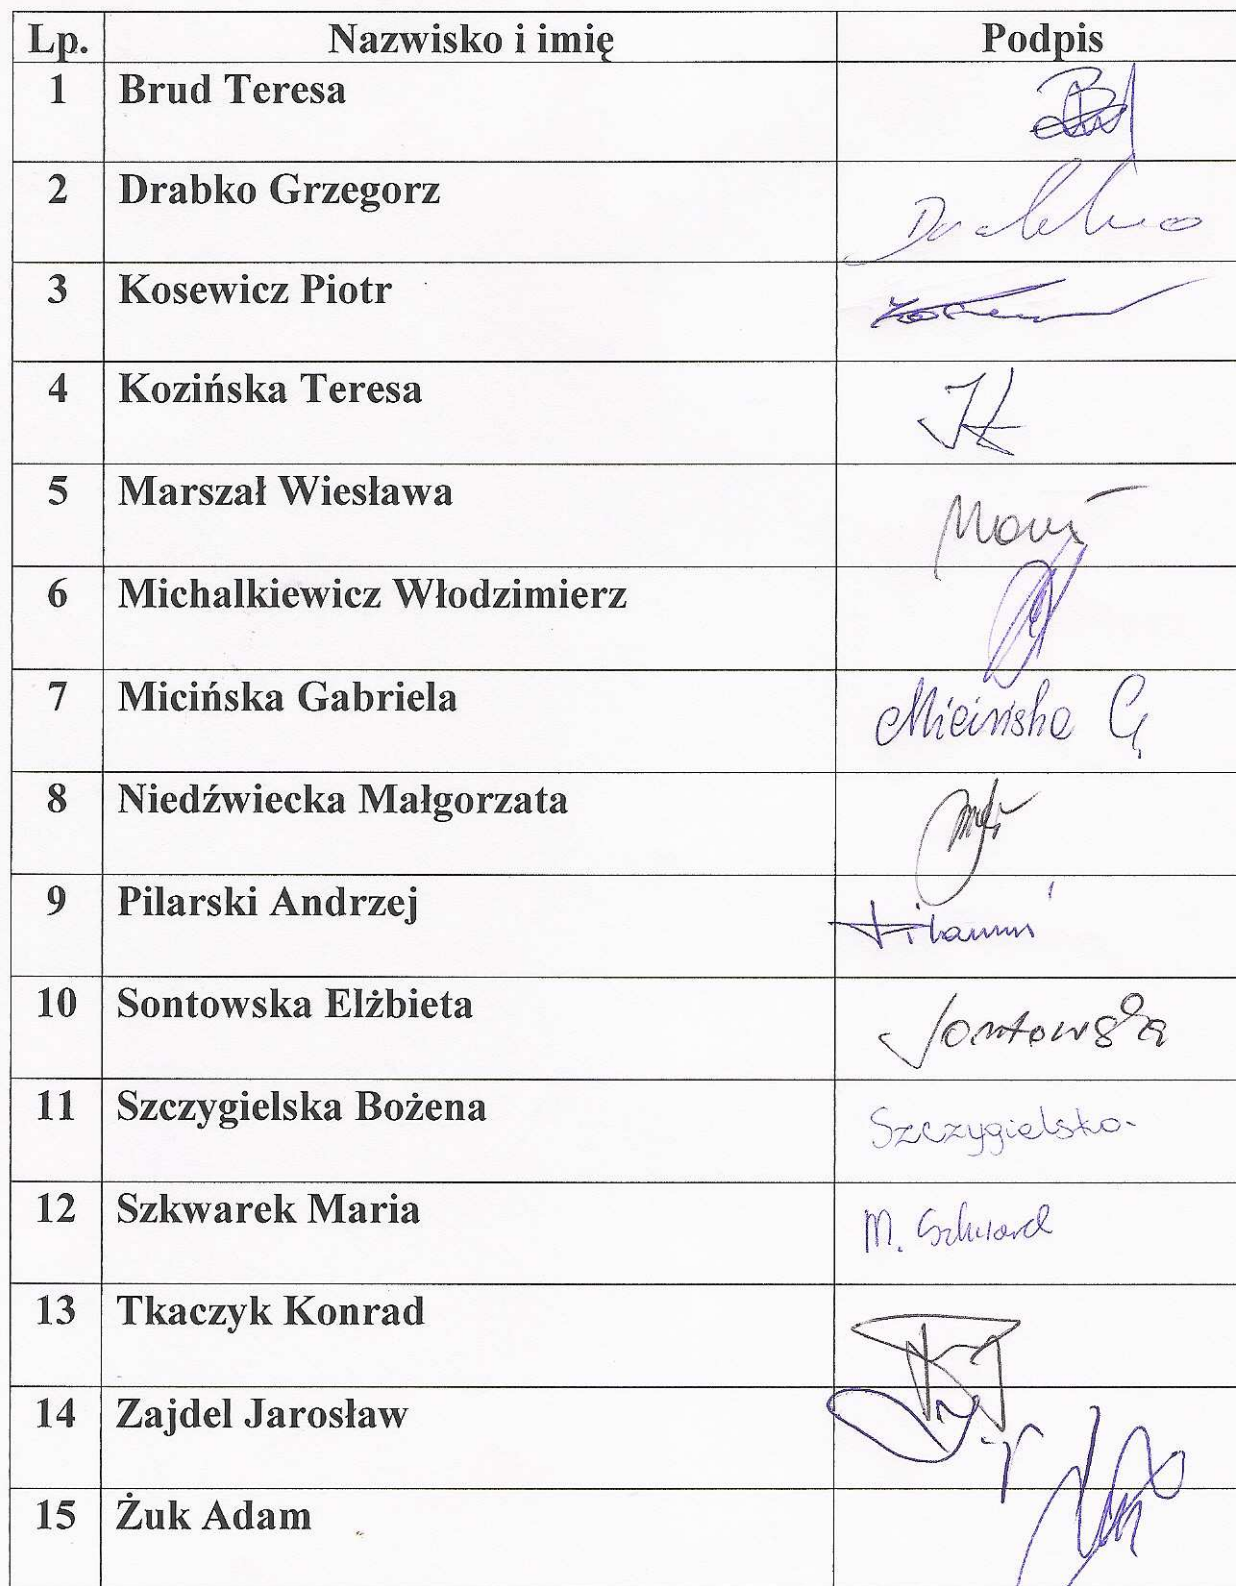 Lp. Nazwisko i imię Podpis
1 Brud Teresa
2 Drabko Grzegorz
3 Kosewicz Piotr
4 Kozińska Teresa
5 Marszał Wiesława
6 Michalkiewicz Włodzimierz
7 Micińska Gabriela Micińska G.
8 Niedźwiecka Małgorzata
9 Pilarski Andrzej
10 Sontowska Elżbieta Sontowska
11 Szczygielska Bożena Szczygielska
12 Szkwarek Maria M. Szkwarek
13 Tkaczyk Konrad
14 Zajdel Jarosław
15 Żuk Adam